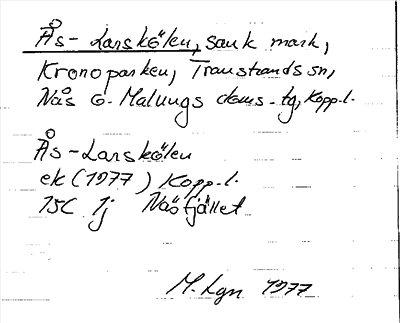 Ås-Larskölen, sank mark,
Kronoparken, Transtrands sn,
Nås o. Malungs doms. tg, Kopp.l.
Ås-Larskölen
ek (1977) Kopp.l.
15C 1j Näsfjället
M.Lgn 1977